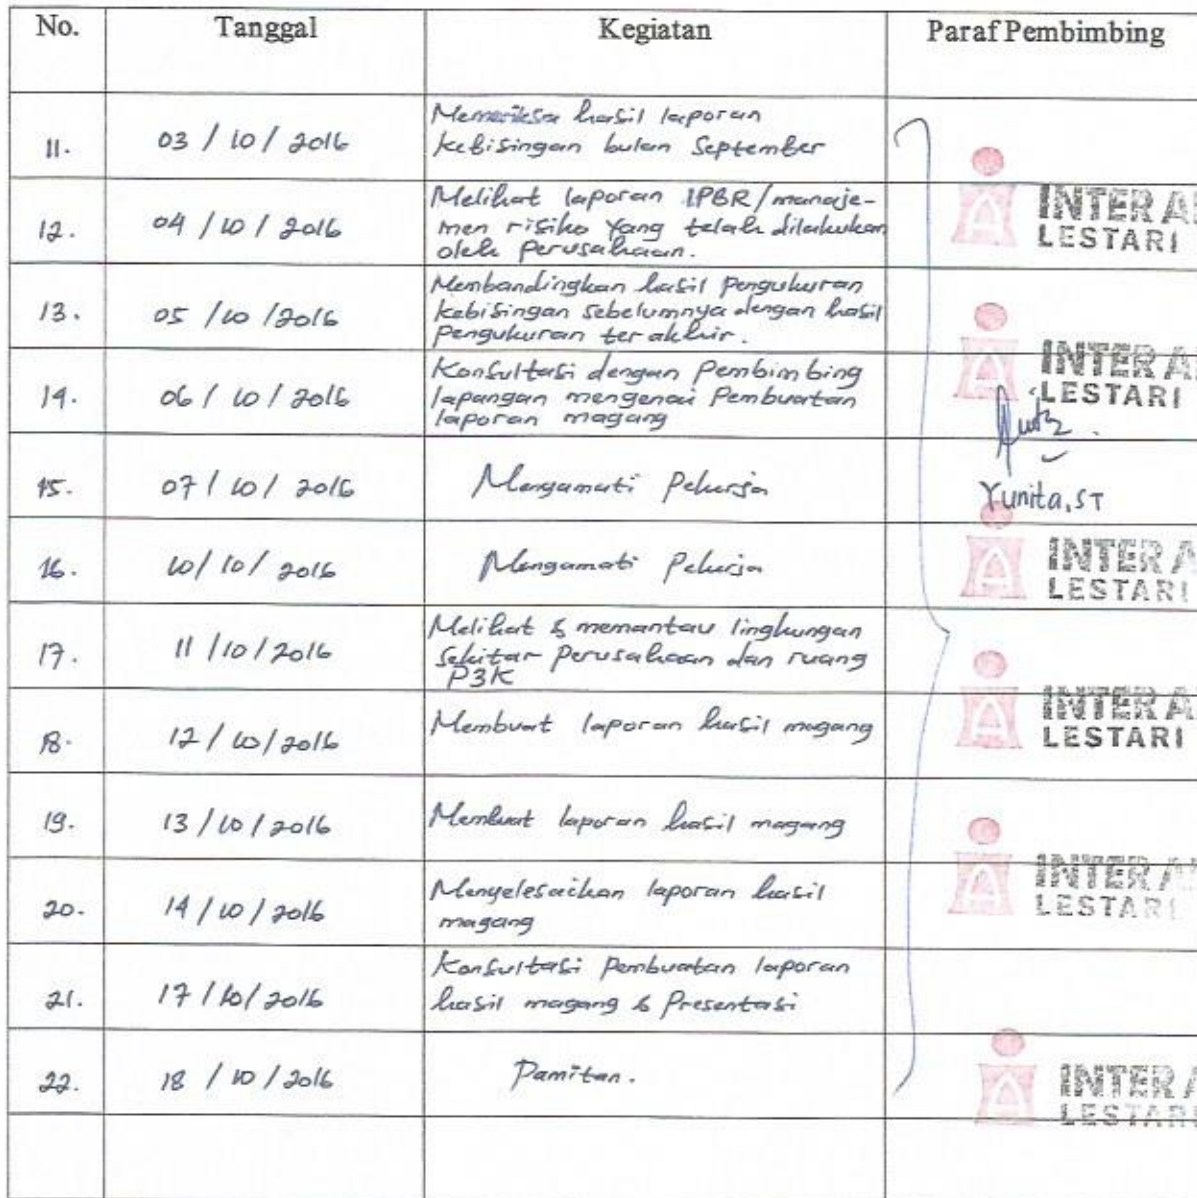 No. Tanggal Kegiatan Paraf Pembimbing
11. 03 / 10 / 2016 Memeriksa hasil laporan
kebisingan bulan September
INTER
LESTARI
12. 04 / 10 / 2016 Melihat laporan IPBR/manaje-
men risiko yang telah dilakukan
oleh perusahaan.
13. 05 / 10 / 2016 Membandingkan hasil pengukuran
kebisingan sebelumnya dengan hasil
pengukuran terakhir.
INTER
LESTARI
14. 06 / 10 / 2016 Konsultasi dengan Pembimbing
lapangan mengenai Pembuatan
laporan magang
15. 07 / 10 / 2016 Mengamati Pekerja
Yunita, ST
16. 10 / 10 / 2016 Mengamati Pekerja
INTER
LESTARI
17. 11 / 10 / 2016 Melihat & memantau lingkungan
sekitar perusahaan dan ruang
P3K
INTER
LESTARI
18. 12 / 10 / 2016 Membuat laporan hasil magang
19. 13 / 10 / 2016 Membuat laporan hasil magang
INTER
LESTARI
20. 14 / 10 / 2016 Menyelesaikan laporan hasil
magang
21. 17 / 10 / 2016 Konsultasi Pembuatan laporan
hasil magang & Presentasi
22. 18 / 10 / 2016 Pamitan.
INTER
LESTARI